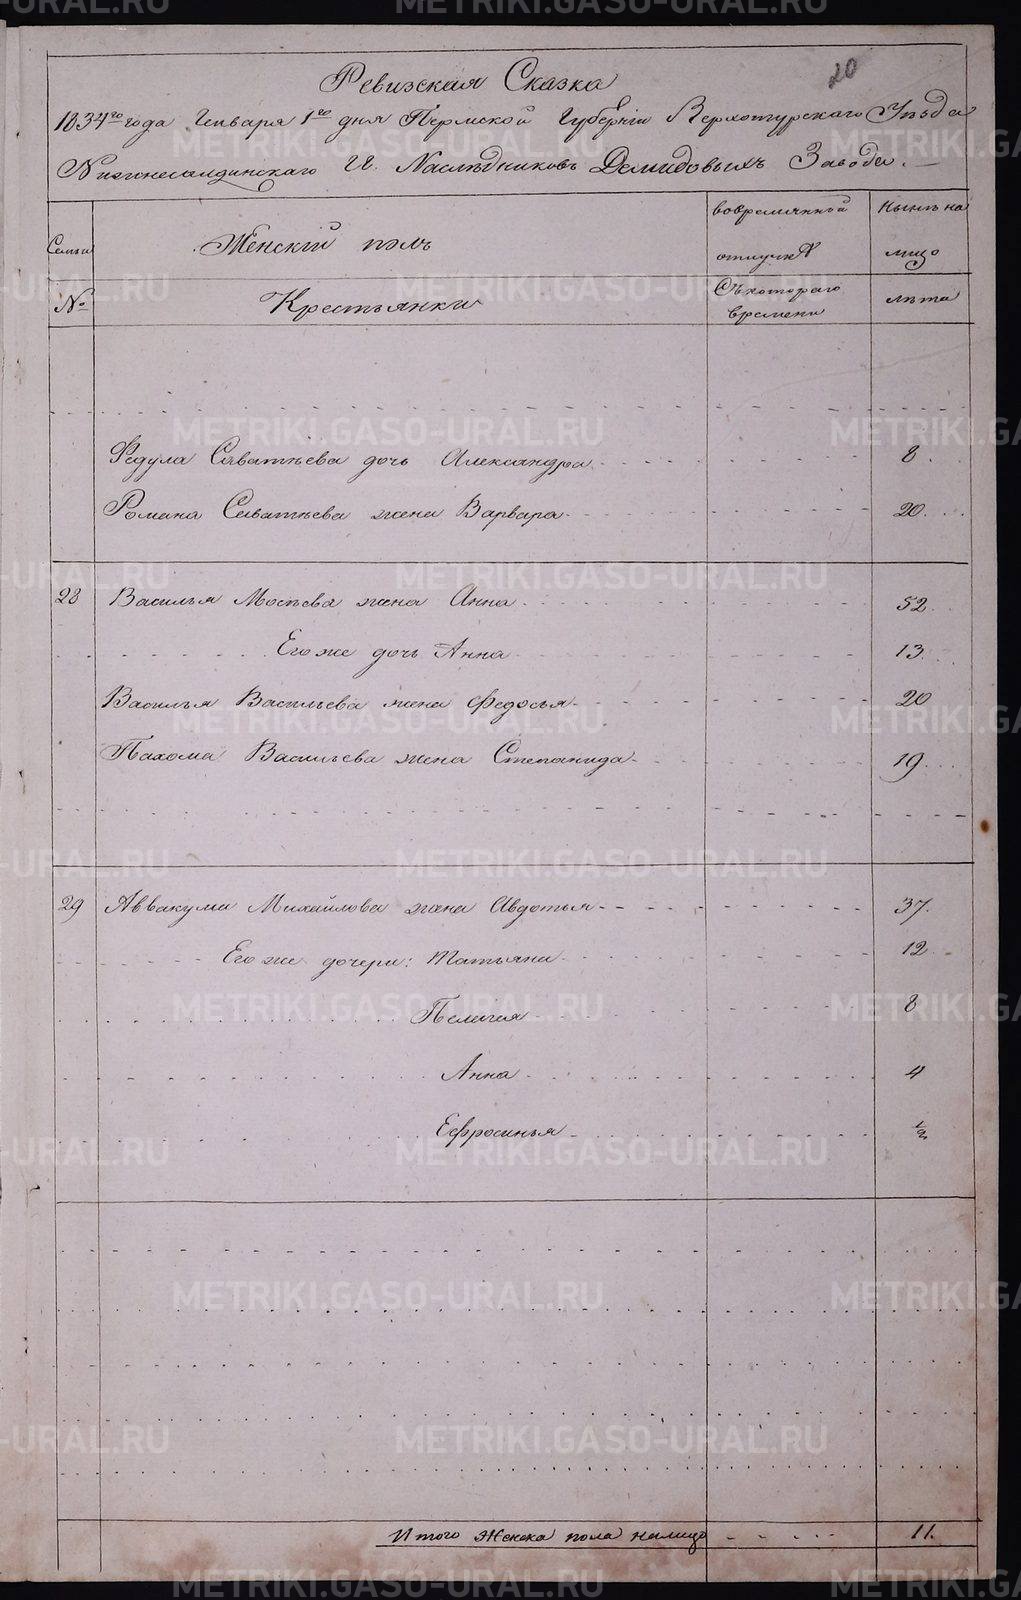 20
Ревизская Сказка
1834го года Генваря 1го дня Пермской Губернiи Верхотурскаго Уѣзда
Нижнесалдинскаго Г.г. Наслѣдниковъ Демидовыхъ Завода.
Семьи
Женскiй полъ
во временной отлучкѣ
Нынѣ на лицо
№
Крестьянки
Съ котораго времени
лѣта
Федула Саватѣева дочь Александра 8
Романа Саватѣева жена Варвара 20
28 Василья Мосѣева жена Анна 52
Его же дочь Анна 13
Василья Васильева жена Федосья 20
Пахома Васильева жена Степанида 19
29 Аввакума Михайлова жена Авдотья 37
Его же дочери: Татьяна 12
Пелагея 8
Анна 4
Ефросинья 1/2
Итого Женска пола налицо 11.
METRIKI.GASO-URAL.RU